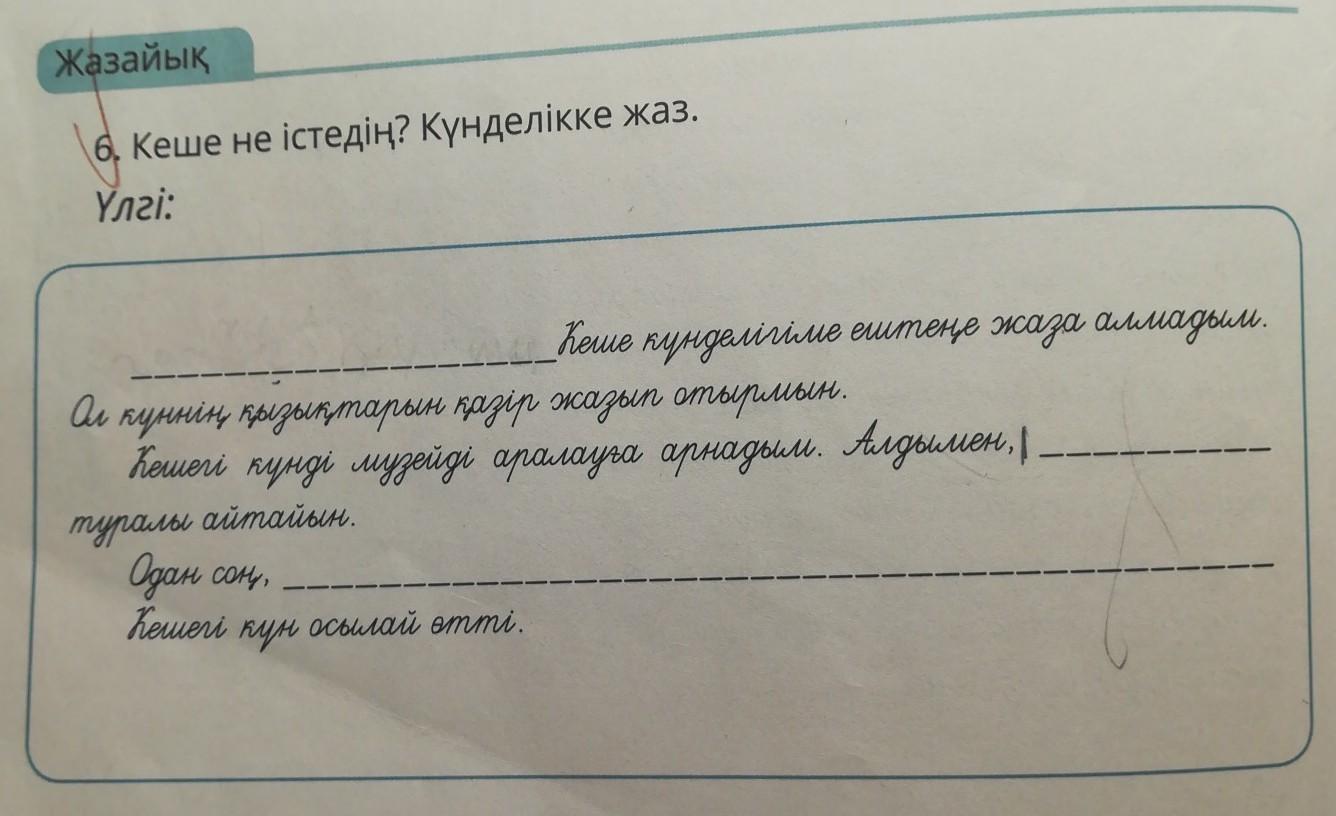 Жазайық
6. Кеше не істедің? Күнделікке жаз.
Үлгі:
____________________Кеше күнделігіме ештеңе жаза алмадым.
Ол күннің қызықтарын қазір жазып отырмын.
Кешегі күнді музейді аралауға арнадым. Алдымен, __________
туралы айтайын.
Одан соң, ______________________________
Кешегі күн осылай өтті.